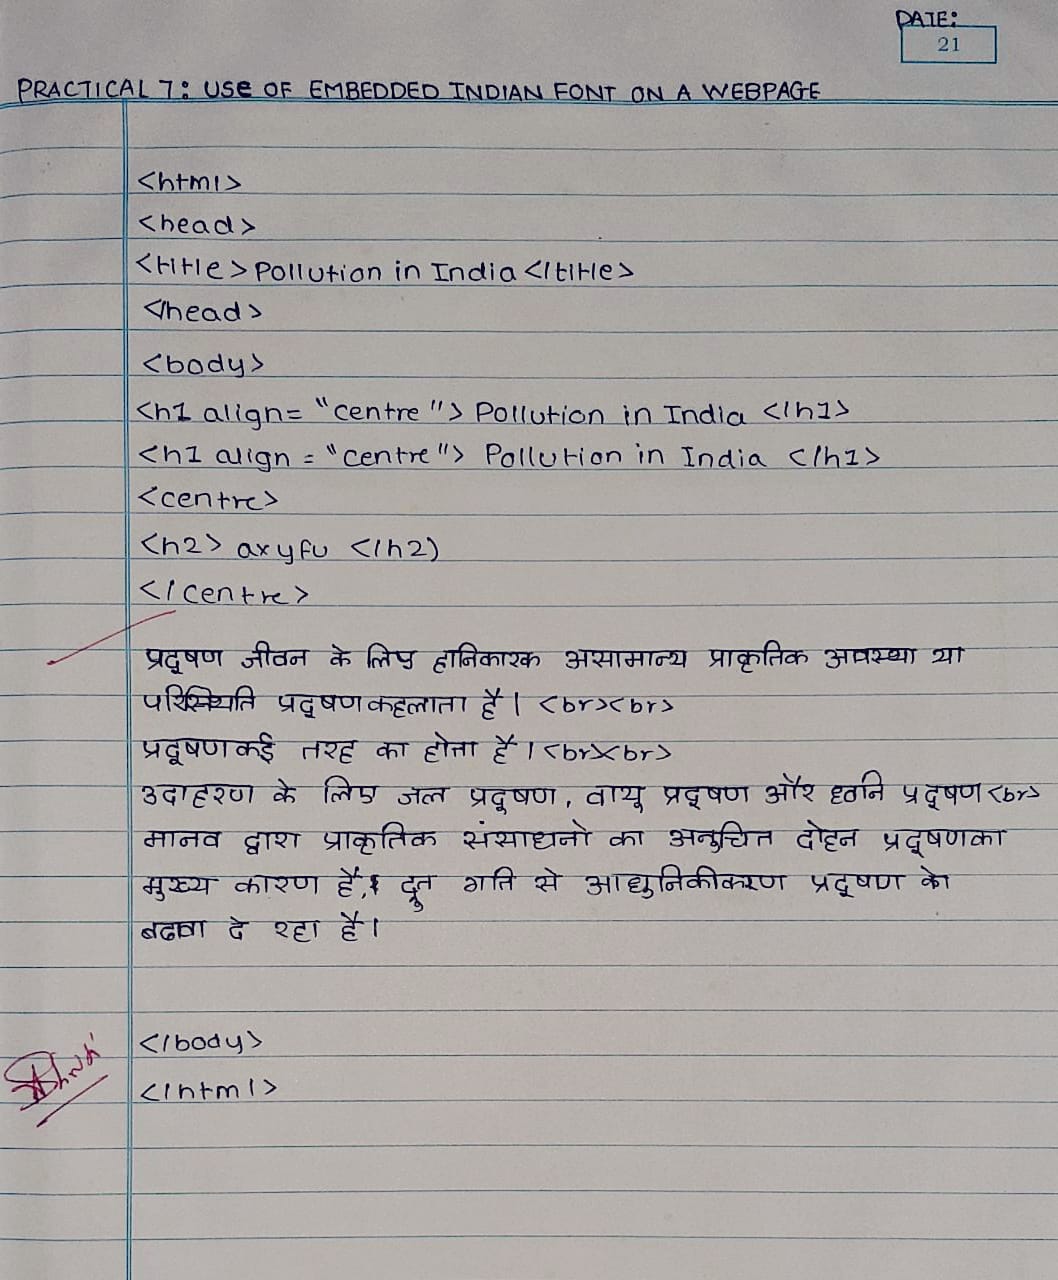 DATE:
21
PRACTICAL 7: USE OF EMBEDDED INDIAN FONT ON A WEBPAGE
<html>
<head>
<title> Pollution in India </title>
</head>
<body>
<h1 align= "centre"> Pollution in India </h1>
<h1 align = "centre"> Pollution in India </h1>
<centre>
<h2> axyfu </h2)
</centre>
प्रदूषण जीवन के लिए हानिकारक असामान्य प्राकृतिक अवस्था या
परिस्थिति प्रदूषण कहलाता है। <br><br>
प्रदूषण कई तरह का होता है। <br><br>
उदाहरण के लिए जल प्रदूषण, वायू प्रदूषण और ध्वनि प्रदूषण <br>
मानव द्वारा प्राकृतिक संसाधनो का अनुचित दोहन प्रदूषण का
मुख्य कारण है, द्रुत गति से आधुनिकीकरण प्रदूषण को
बढावा दे रहा है।
</body>
</html>